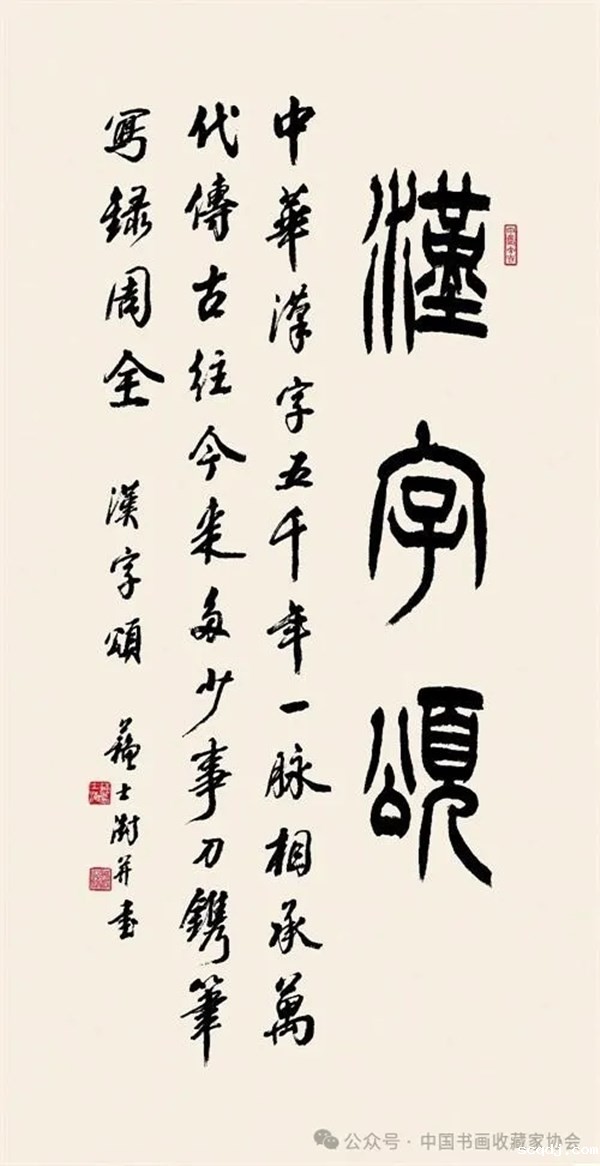 漢字頌
中華漢字五千年一脉相承萬
代傳古往今来多少事刀鐫筆
寫録周全 漢字頌 蘇士澍并書
公众号 · 中国书画收藏家协会